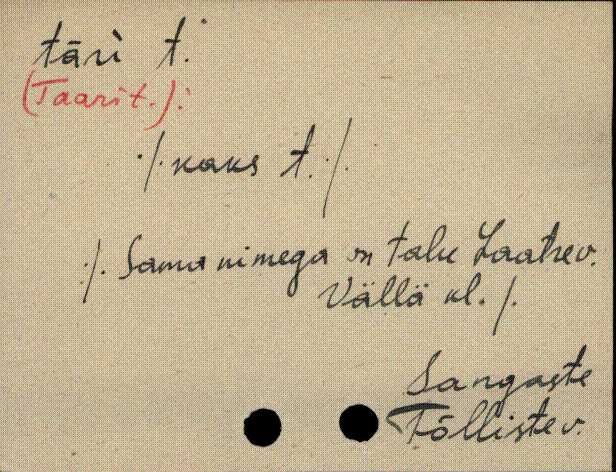 tāri t.
(Taari t.):
·/. kaks t. ·/.
·/. Sama nimega on talu Laatre v.
Vällä kl. ·/.
Sangaste
Tõlliste v.